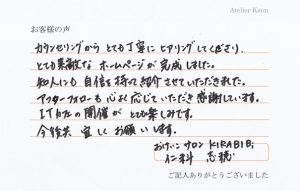 Atelier Kaon
お客様の声
カウンセリングから とても丁寧に ヒアリングしてくださり、
とても素敵な ホームページが 完成しました。
知人にも 自信を持って紹介させていただきました。
アフターフォローも 心よく応じていただき 感謝しています。
IT女子の開催が とても楽しみです。
今後共 宜しく お願いします。
おけいこサロン KIRABIBi
仁科
ご記入ありがとうございました